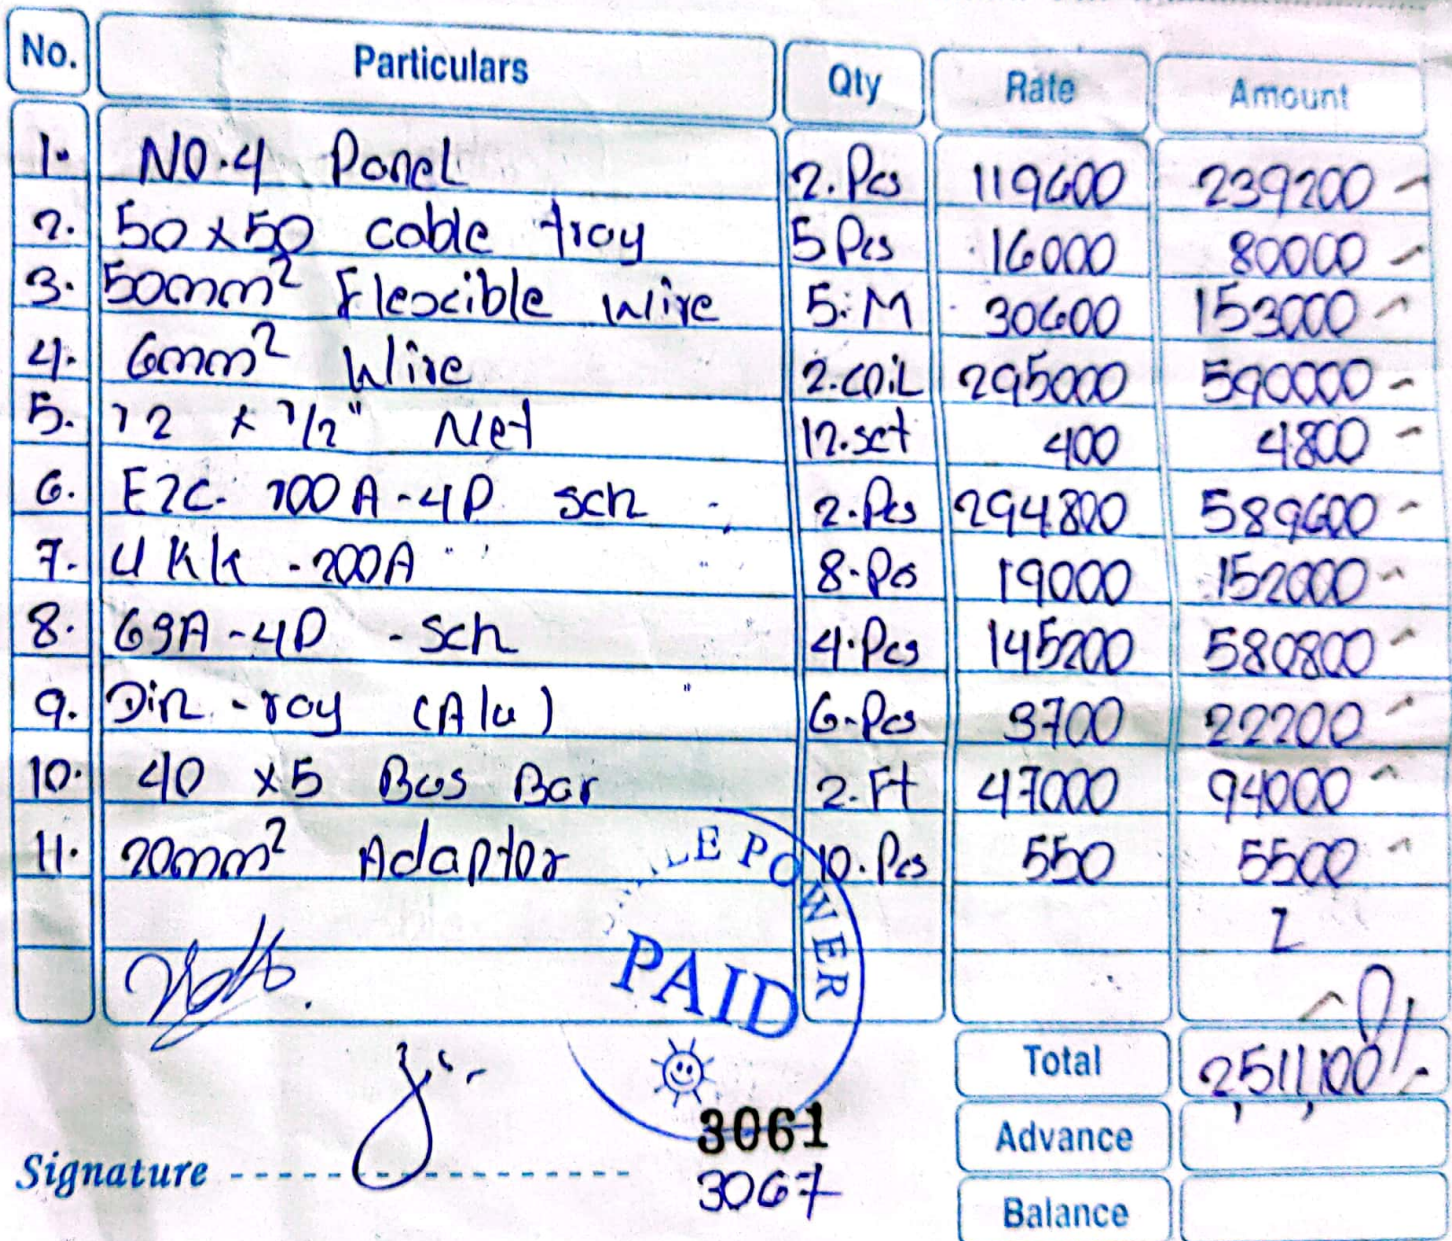 No. Particulars Qty Rate Amount
1. NO.4 Panel 2.Pcs 119600 239200
2. 50x50 cable tray 5 Pcs 16000 80000
3. 50mm² Flexcible Wire 5.M 30600 153000
4. 6mm² Wire 2.coil 295000 590000
5. 12 x 1/2" Net 12.set 400 4800
6. EZC- 100A-4P sch 2.Pcs 294800 589600
7. UKK -200A 8-Pcs 19000 152000
8. 63A-4P -sch 4.Pcs 145200 580800
9. Din -ray (Alu) 6-Pcs 3700 22200
10. 40 x5 Bus Bar 2.Ft 47000 94000
11. 20mm² Adaptor 10.Pcs 550 5500
LE POWER
PAID
Total 2,511,100/-
3061
Advance
Signature
3067
Balance